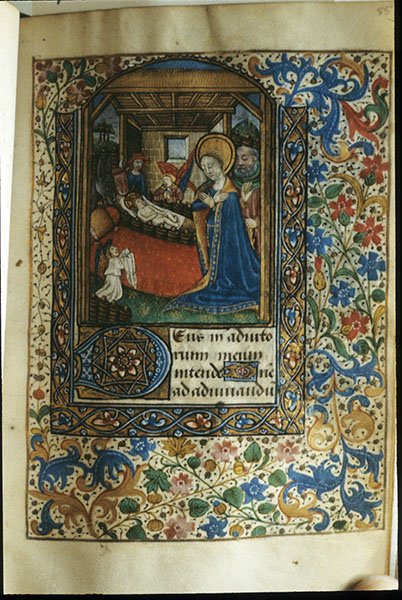 Deus in adiuto
rium meum
intende Dne
ad adiuuandu